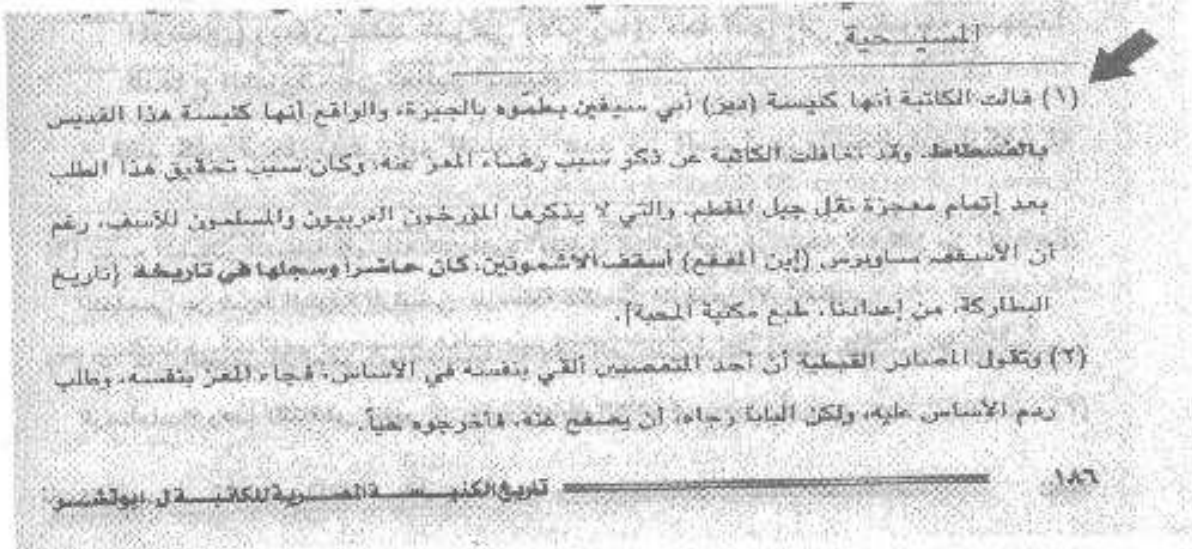 المسيحية.
(١) قالت الكاتبة أنها كنيسة (دير) أبي سيفين بطموه بالجيزة، والواقع أنها كنيسة هذا القديس
بالفسطاط. وقد تغافلت الكاتبة عن ذكر سبب رضاء المعز عنه، وكان سبب تحقيق هذا الطلب
بعد إتمام معجزة نقل جبل المقطم، والتي لا يذكرها المؤرخون الغربيون والمسلمون للأسف، رغم
أن الأسقف ساويرس (إبن المقفع) أسقف الأشمونين، كان حاضراً وسجلها في تاريخه (تاريخ
البطاركة، من إعدادنا، طبع مكتبة المحبة).
(٢) وتقول المصادر القبطية أن أحد المتعصبين ألقي بنفسه في الأساس، فجاء المعز بنفسه، وطلب
ردم الأساس عليه، ولكن البابا رجاه، أن يصفح عنه، فأخرجوه حياً.
١٨٦ تاريخ الكنيسة المصرية للكاتبة ل. ابوتشر